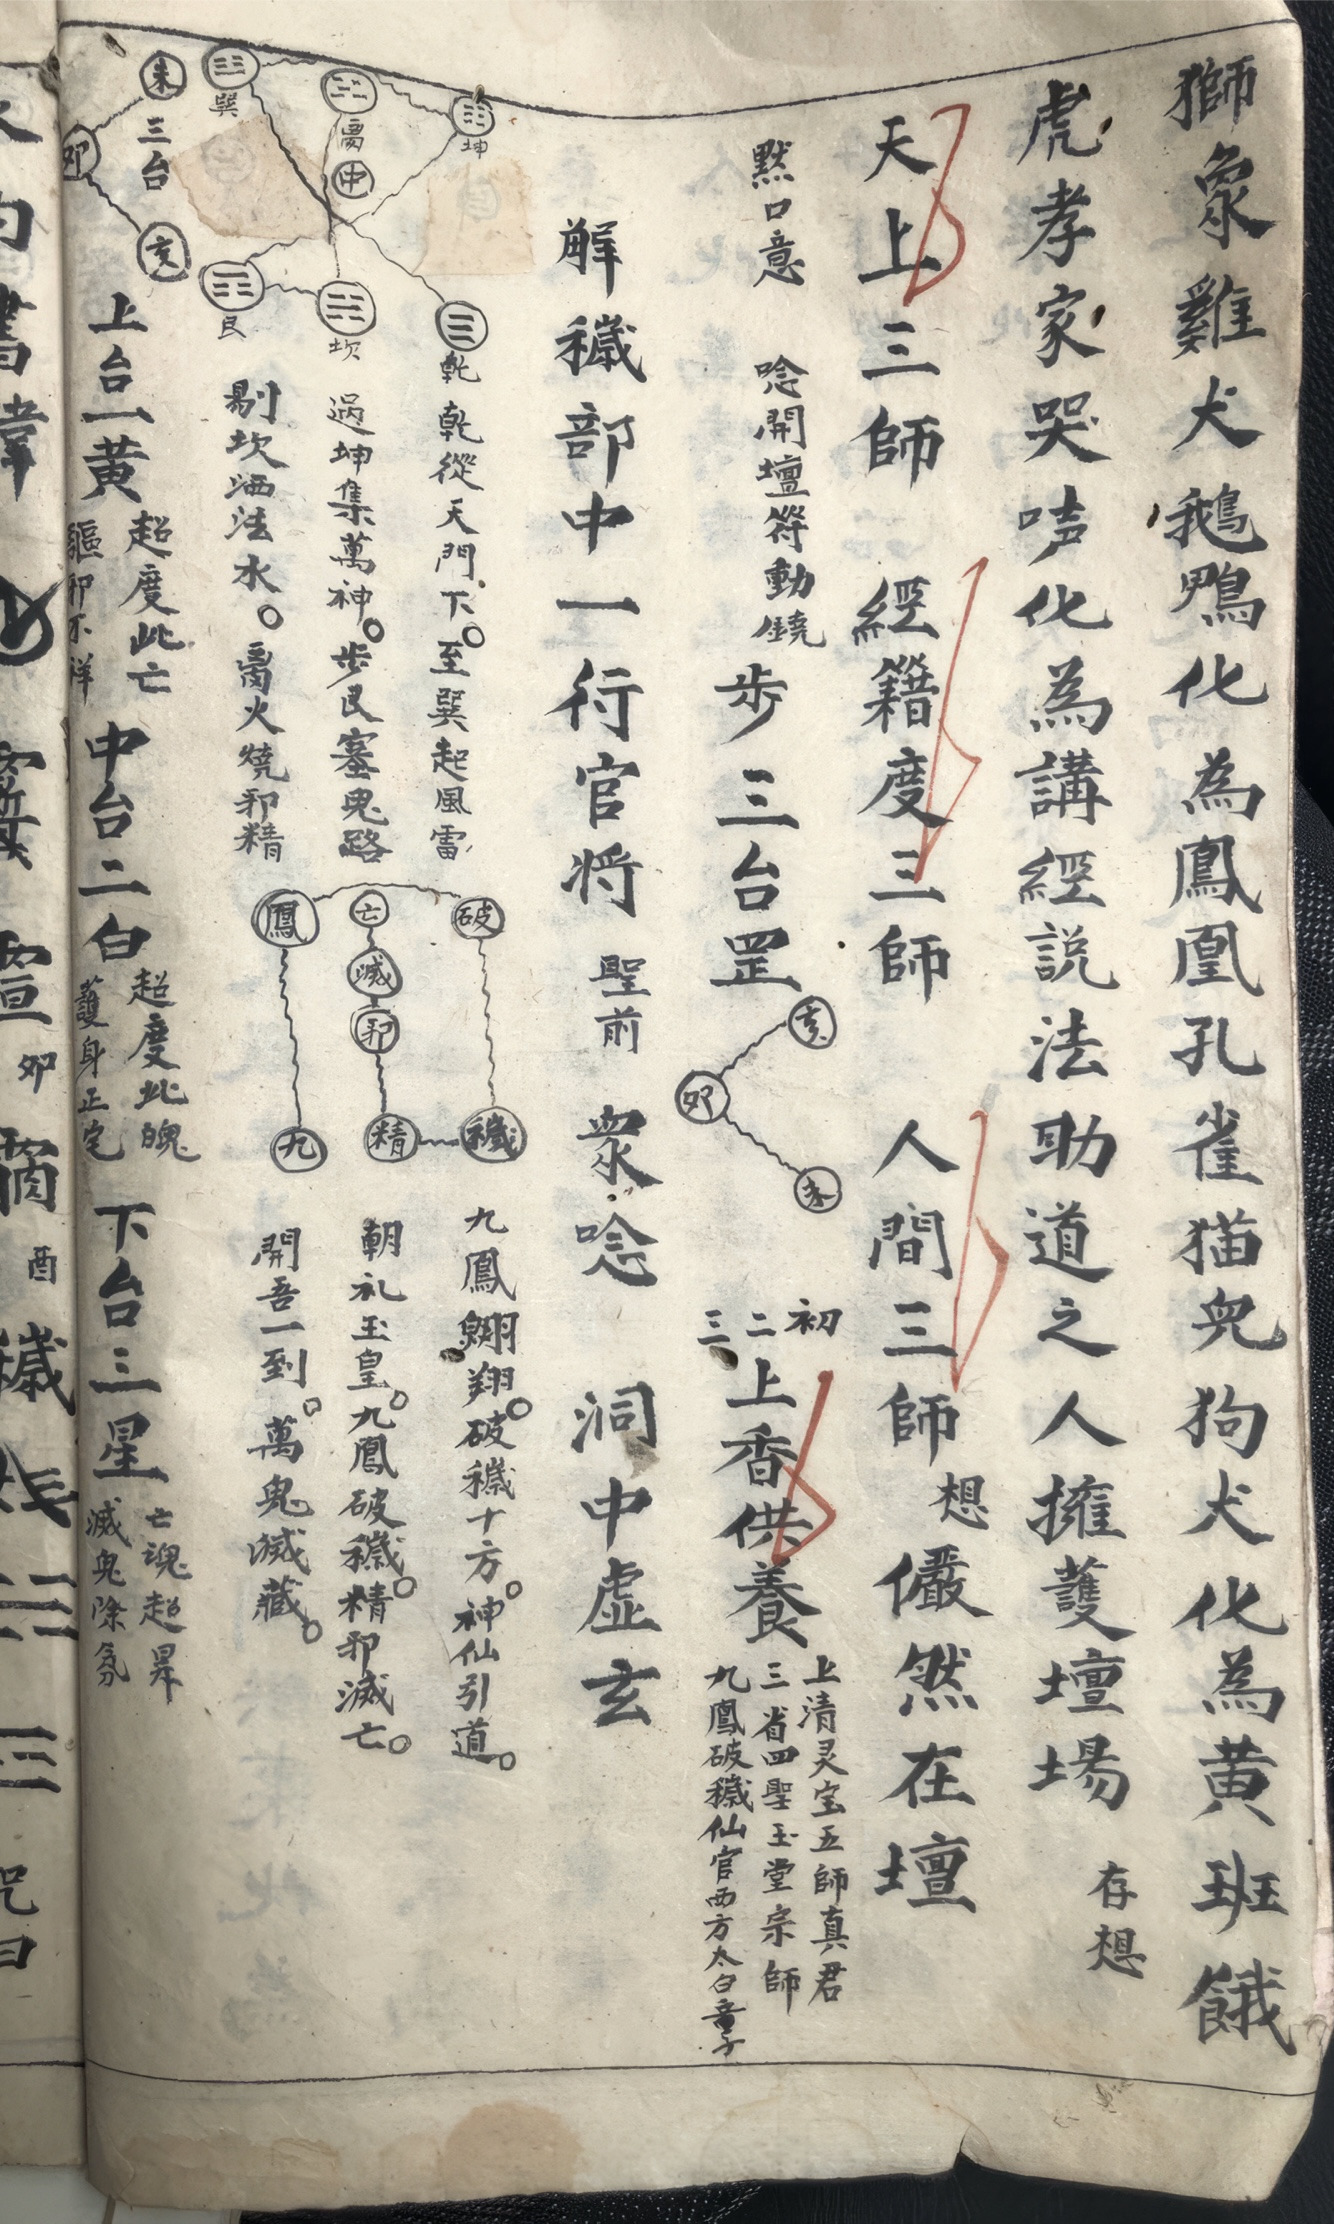 獅象雞犬鵝鴨化為鳳凰孔雀猫兕狗犬化為黄班餓
虎孝家哭声化為講經説法助道之人擁護壇場 存想
天上三師 經籍度三師 人間三師 想 儼然在壇
默口意 唸開壇符動鐃 步三台罡
亥
卯
未
初
二
三
上香供養
上清灵宝五師真君
三省四聖玉堂宗師
九鳳破穢仙官西方太白童子
解穢部中一行官将 聖前 衆唸 洞中虚玄
坤
離
中
巽
乾
坎
艮
乾從天門下。至巽起風雷
過坤集萬神。步艮塞鬼路
剔坎洒法水。离火燒邪精
破
亡
滅
邪
鳳
穢
精
九
九鳳翱翔。破穢十方。神仙引道。
朝礼玉皇。九鳳破穢。精邪滅亡。
開吾一到。萬鬼滅藏。
未
三台
卯
亥
上台一黄
超度此亡
驅邪不祥
中台二白
超度此魄
護身正宅
下台三星
亡魂超昇
滅鬼除氛
卯
酉
穢
咒曰